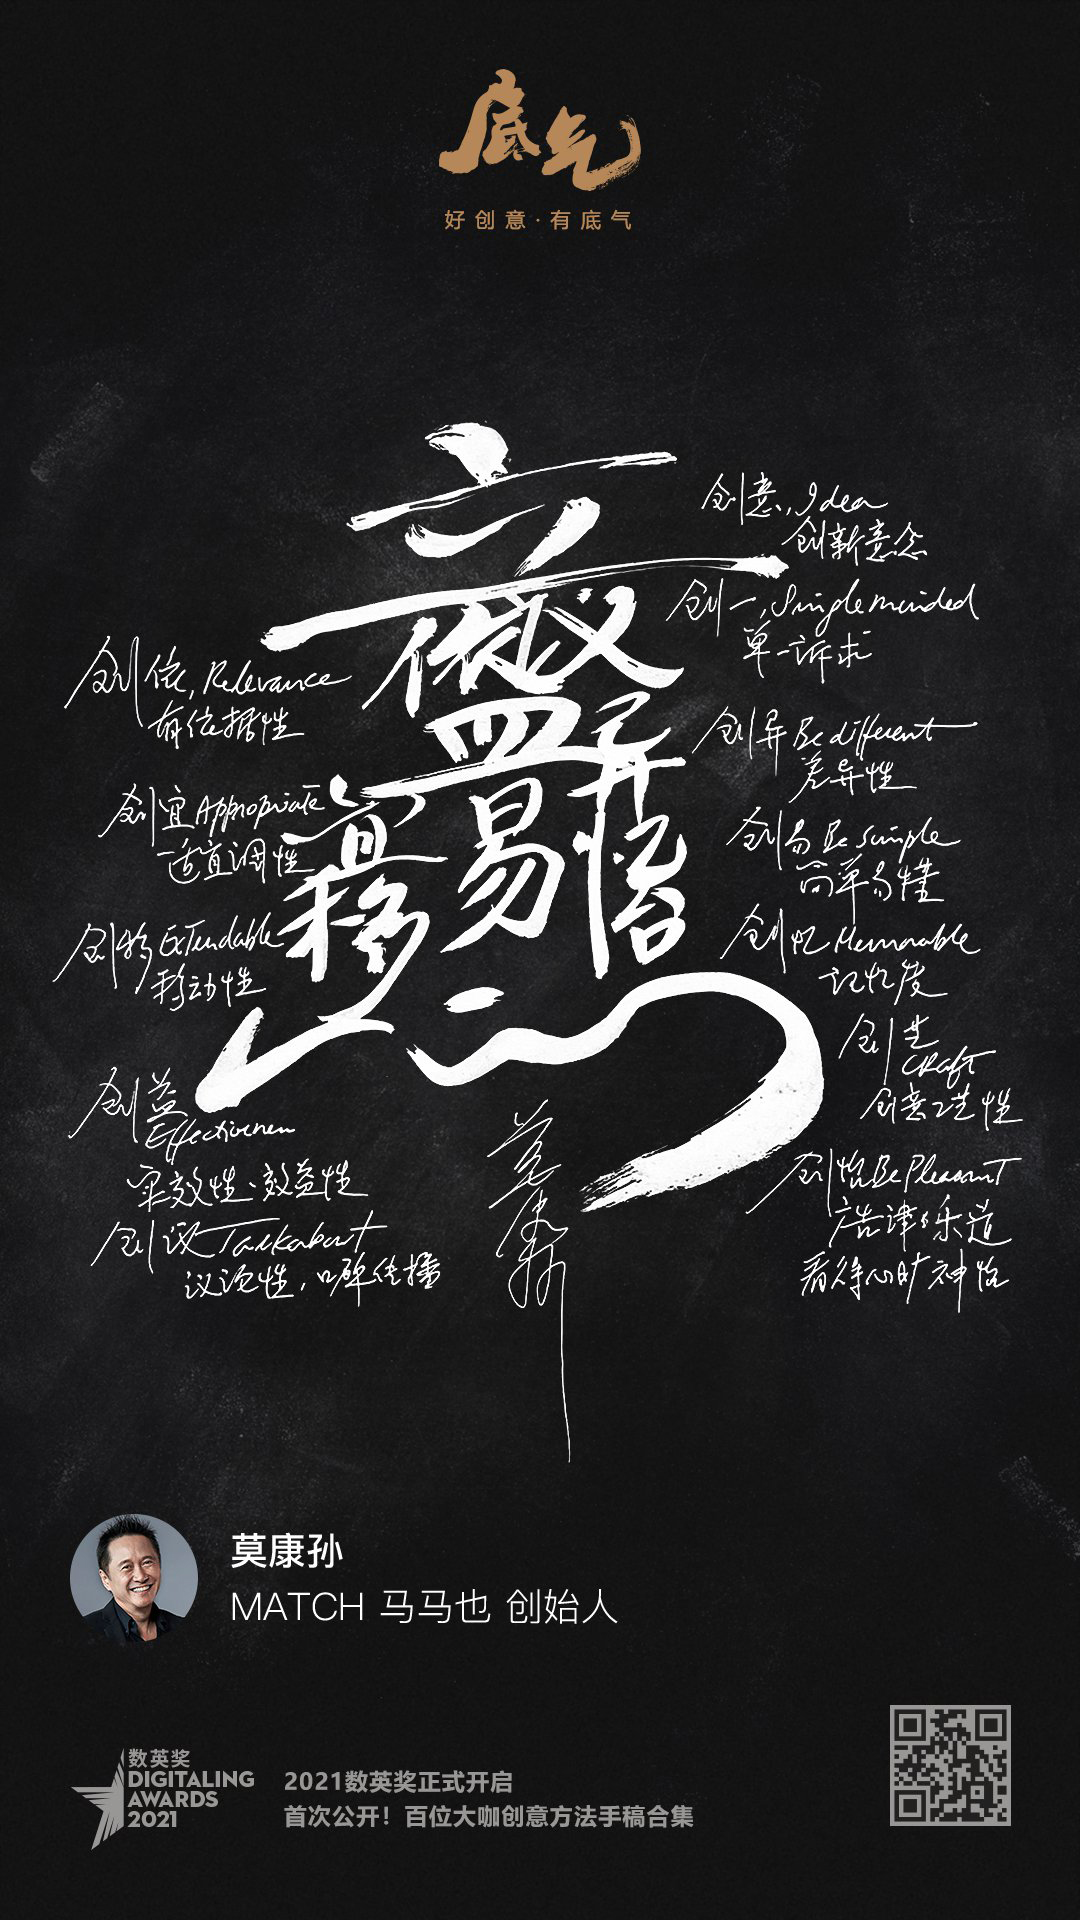 底气
好创意·有底气
创意, Idea
创新意念
创一, Single minded
单一诉求
创异 Be different
差异性
创易 Be simple
简单易懂
创忆 Memorable
记忆度
创艺
CRaft
创意工艺性
创怡 Be Pleasant
广告津津乐道
看得心旷神怡
创依, Relevance
有依据性
创宜 Appropriate
适宜调性
创移 Extendable
移动性
创益
Effectiveness
实效性、效益性
创议 Talkabout
议论性，口碑传播
莫康孙
莫康孙
MATCH 马马也 创始人
数英奖
DIGITALING
AWARDS
2021
2021数英奖正式开启
首次公开！百位大咖创意方法手稿合集